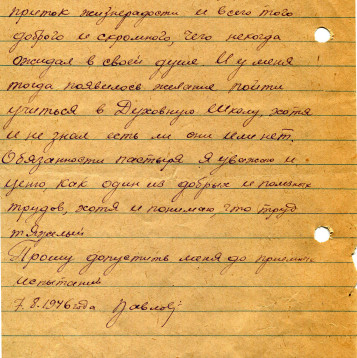 приток жизнерадости и всего того
доброго и скромного, чего некогда
ожидал в своей душе И у меня
тогда появилось желание пойти
учиться в Духовную Школу, хотя
и не знал есть ли они или нет.
Обязанности пастыря я уважаю и
ценю, как один из добрых и полезных
трудов, хотя и понимаю, что труд
тяжелый
Прошу допустить меня до приемных
испытаний
7.8.1946 года Павлов